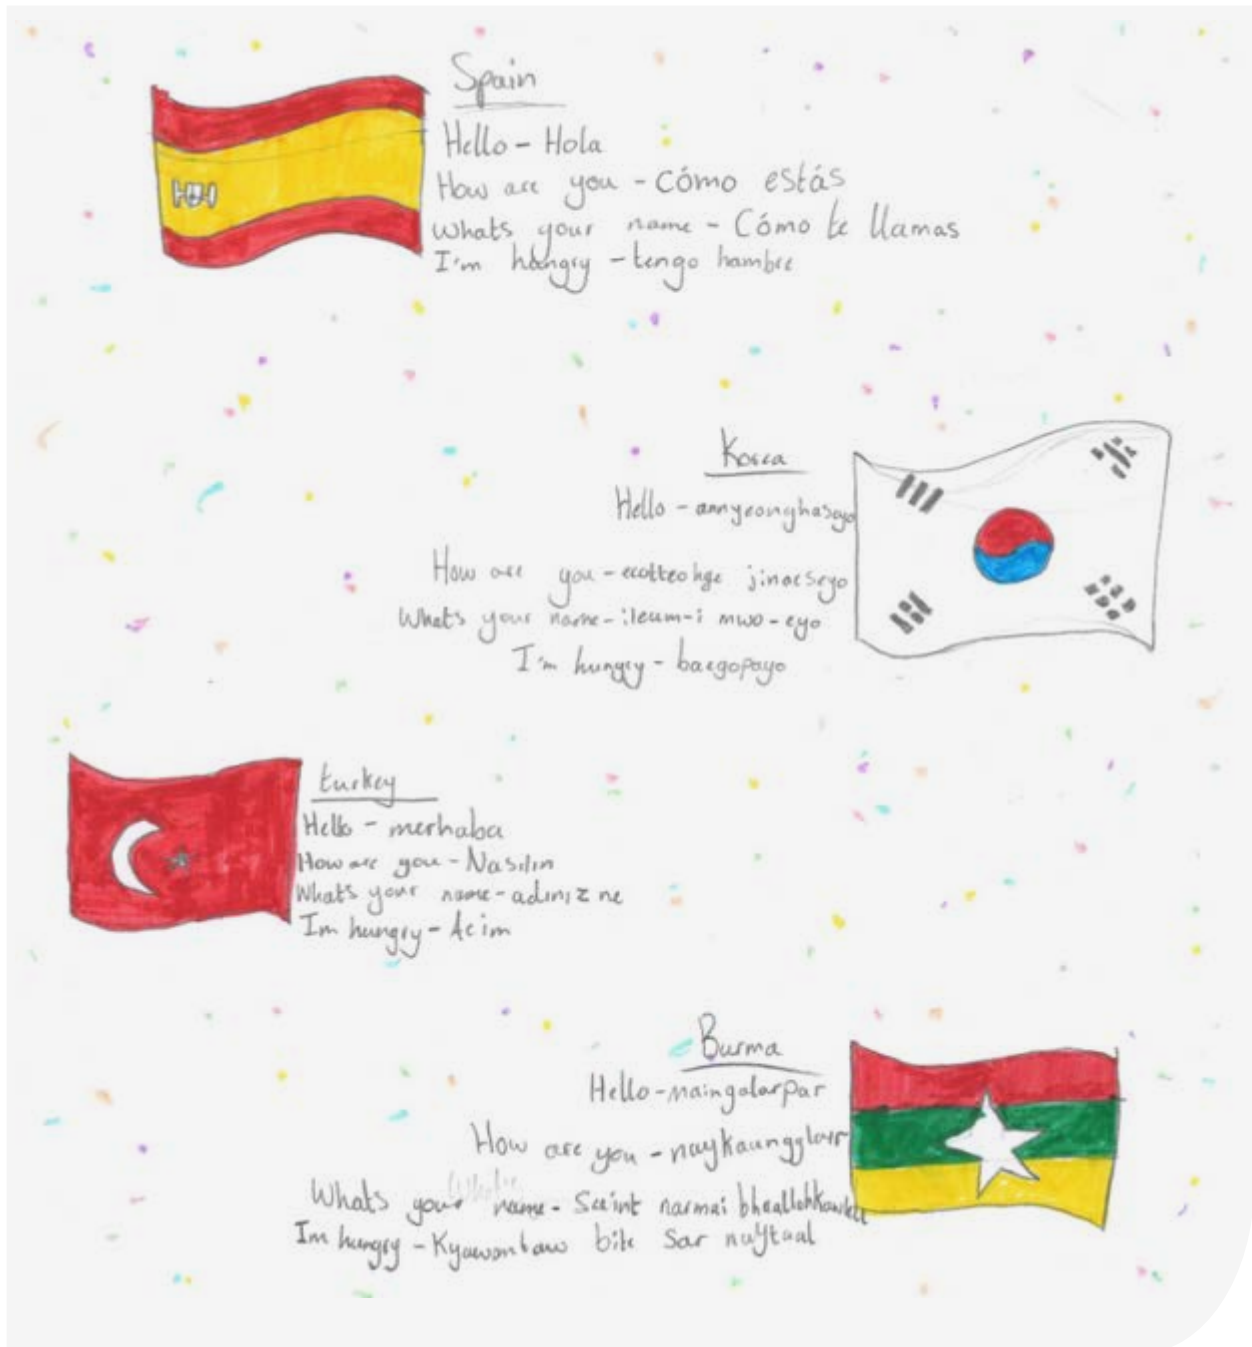 Spain
Hello - Hola
How are you - Cómo estás
Whats your name - Cómo te llamas
I'm hungry - tengo hambre
Korea
Hello - annyeonghaseyo
How are you - eotteohge jinaeseyo
Whats your name - ileum-i mwo-eyo
I'm hungry - baegopayo
turkey
Hello - merhaba
How are you - Nasılın
Whats your name - adınız ne
Im hungry - Acim
Burma
Hello - maingalarpar
How are you - naykaungglarr
Whats your name - narmai
Im hungry - bite Sar